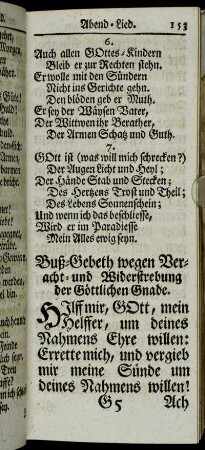 Abend-Lied. 153
6.
Auch allen GOttes-Kindern
Bleib er zur Rechten stehn.
Er wolle mit den Sündern
Nicht ins Gerichte gehn.
Den blöden geb er Muth.
Er sey der Wäysen Vater,
Der Wittwen ihr Berather,
Der Armen Schatz und Guth.
7.
GOtt ist (was will mich schrecken?)
Der Augen Licht und Heyl;
Der Hände Stab und Stecken;
Des Hertzens Trost und Theil;
Des Lebens Sonnenschein;
Und wenn ich das beschliesse,
Wird er im Paradiese
Mein Alles ewig seyn.
Buß-Gebeth wegen Ver-
acht- und Widerstrebung
der Göttlichen Gnade.
HIlff mir, GOtt, mein
Helffer, um deines
Nahmens Ehre willen:
Errette mich, und vergieb
mir meine Sünde um
deines Nahmens willen!
G 5 Ach